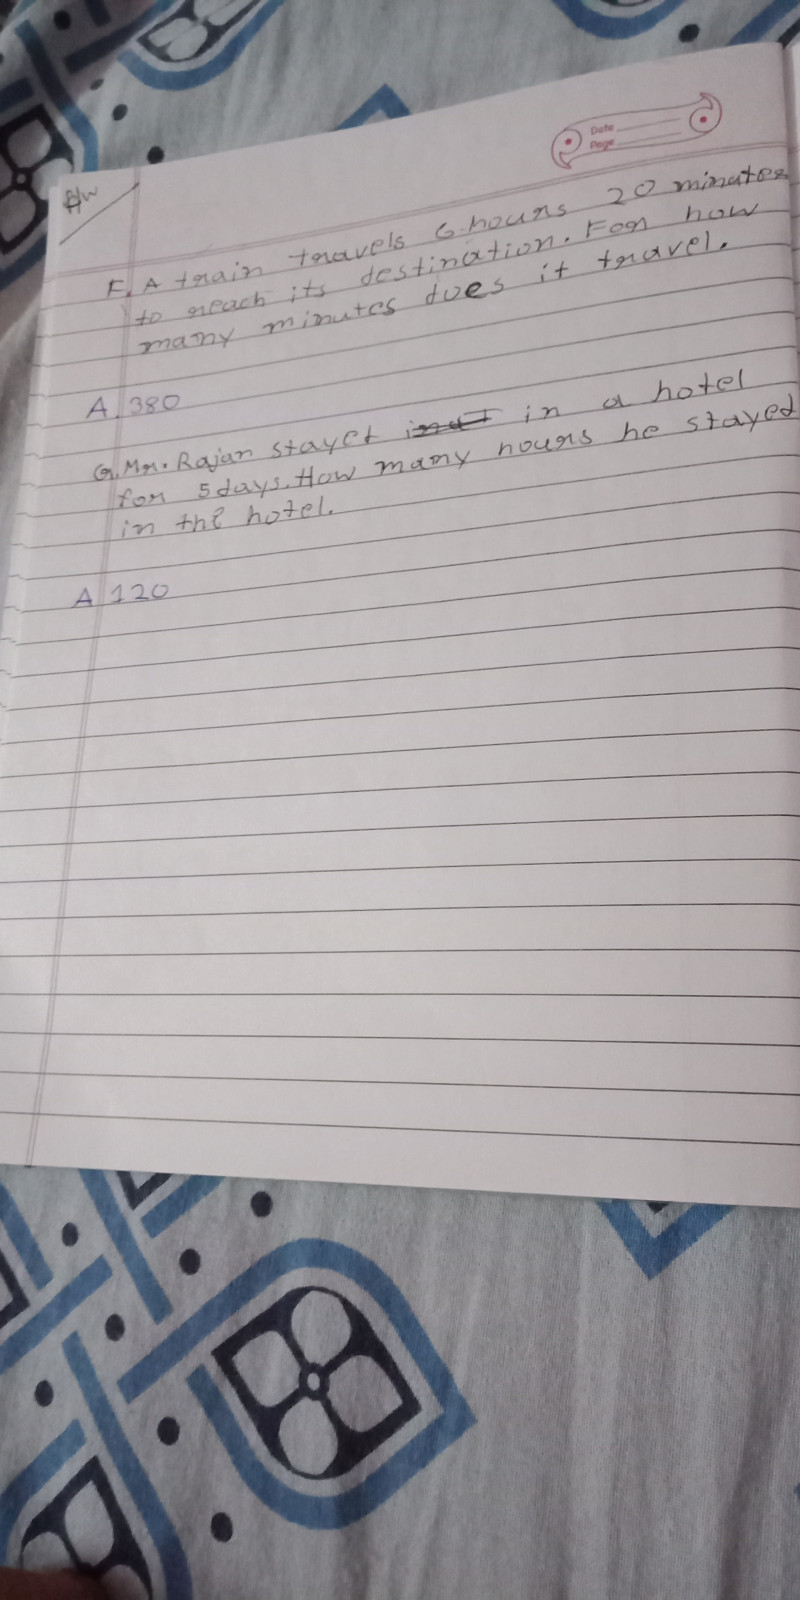 H/W
Date
Page
F. A train travels 6 hours 20 minutes
to reach its destination. For how
many minutes does it travel.
A. 380
G. Mr. Rajan stayet in a hotel
for 5 days. How many hours he stayed
in the hotel.
A 120